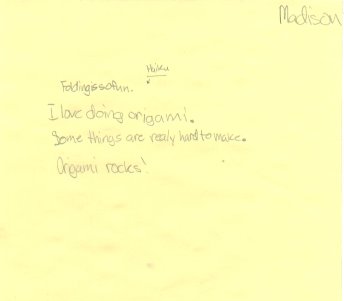 Madison
Haiku
Folding is so fun.
I love doing origami.
Some things are realy hard to make.
Origami rocks!